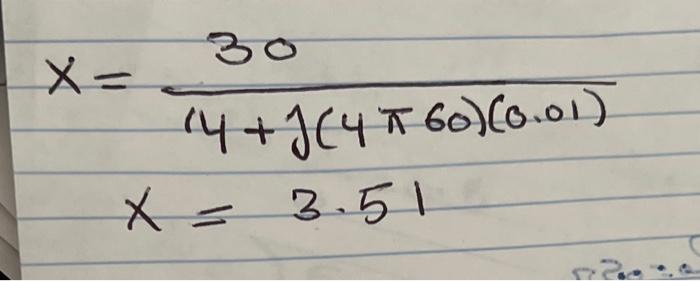 x = 30 / (4 + j(4π60)(0.01)
x = 3.51